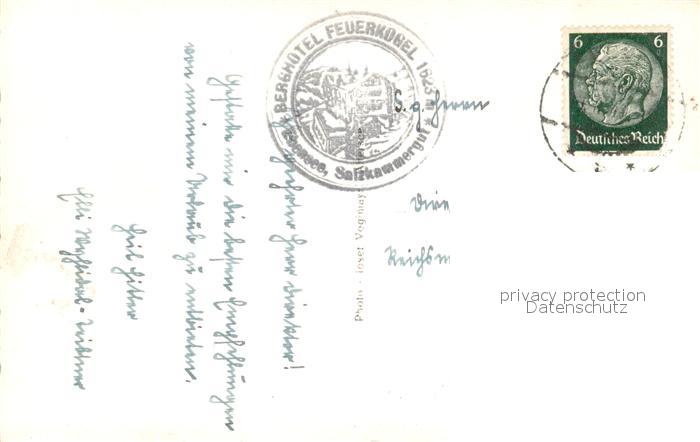 BERGHOTEL FEUERKOGEL 1623 m
Ebensee, Salzkammergut
6 6
Deutsches Reich
S. a. Herrn
Dire
Reichsm
Photo - Josef Vog
Sehr geehrter Herr Direktor!
Gestatte mir die besten Empfehlungen
von meinem Urlaub zu entbieten.
Heil Hitler
privacy protection
Datenschutz